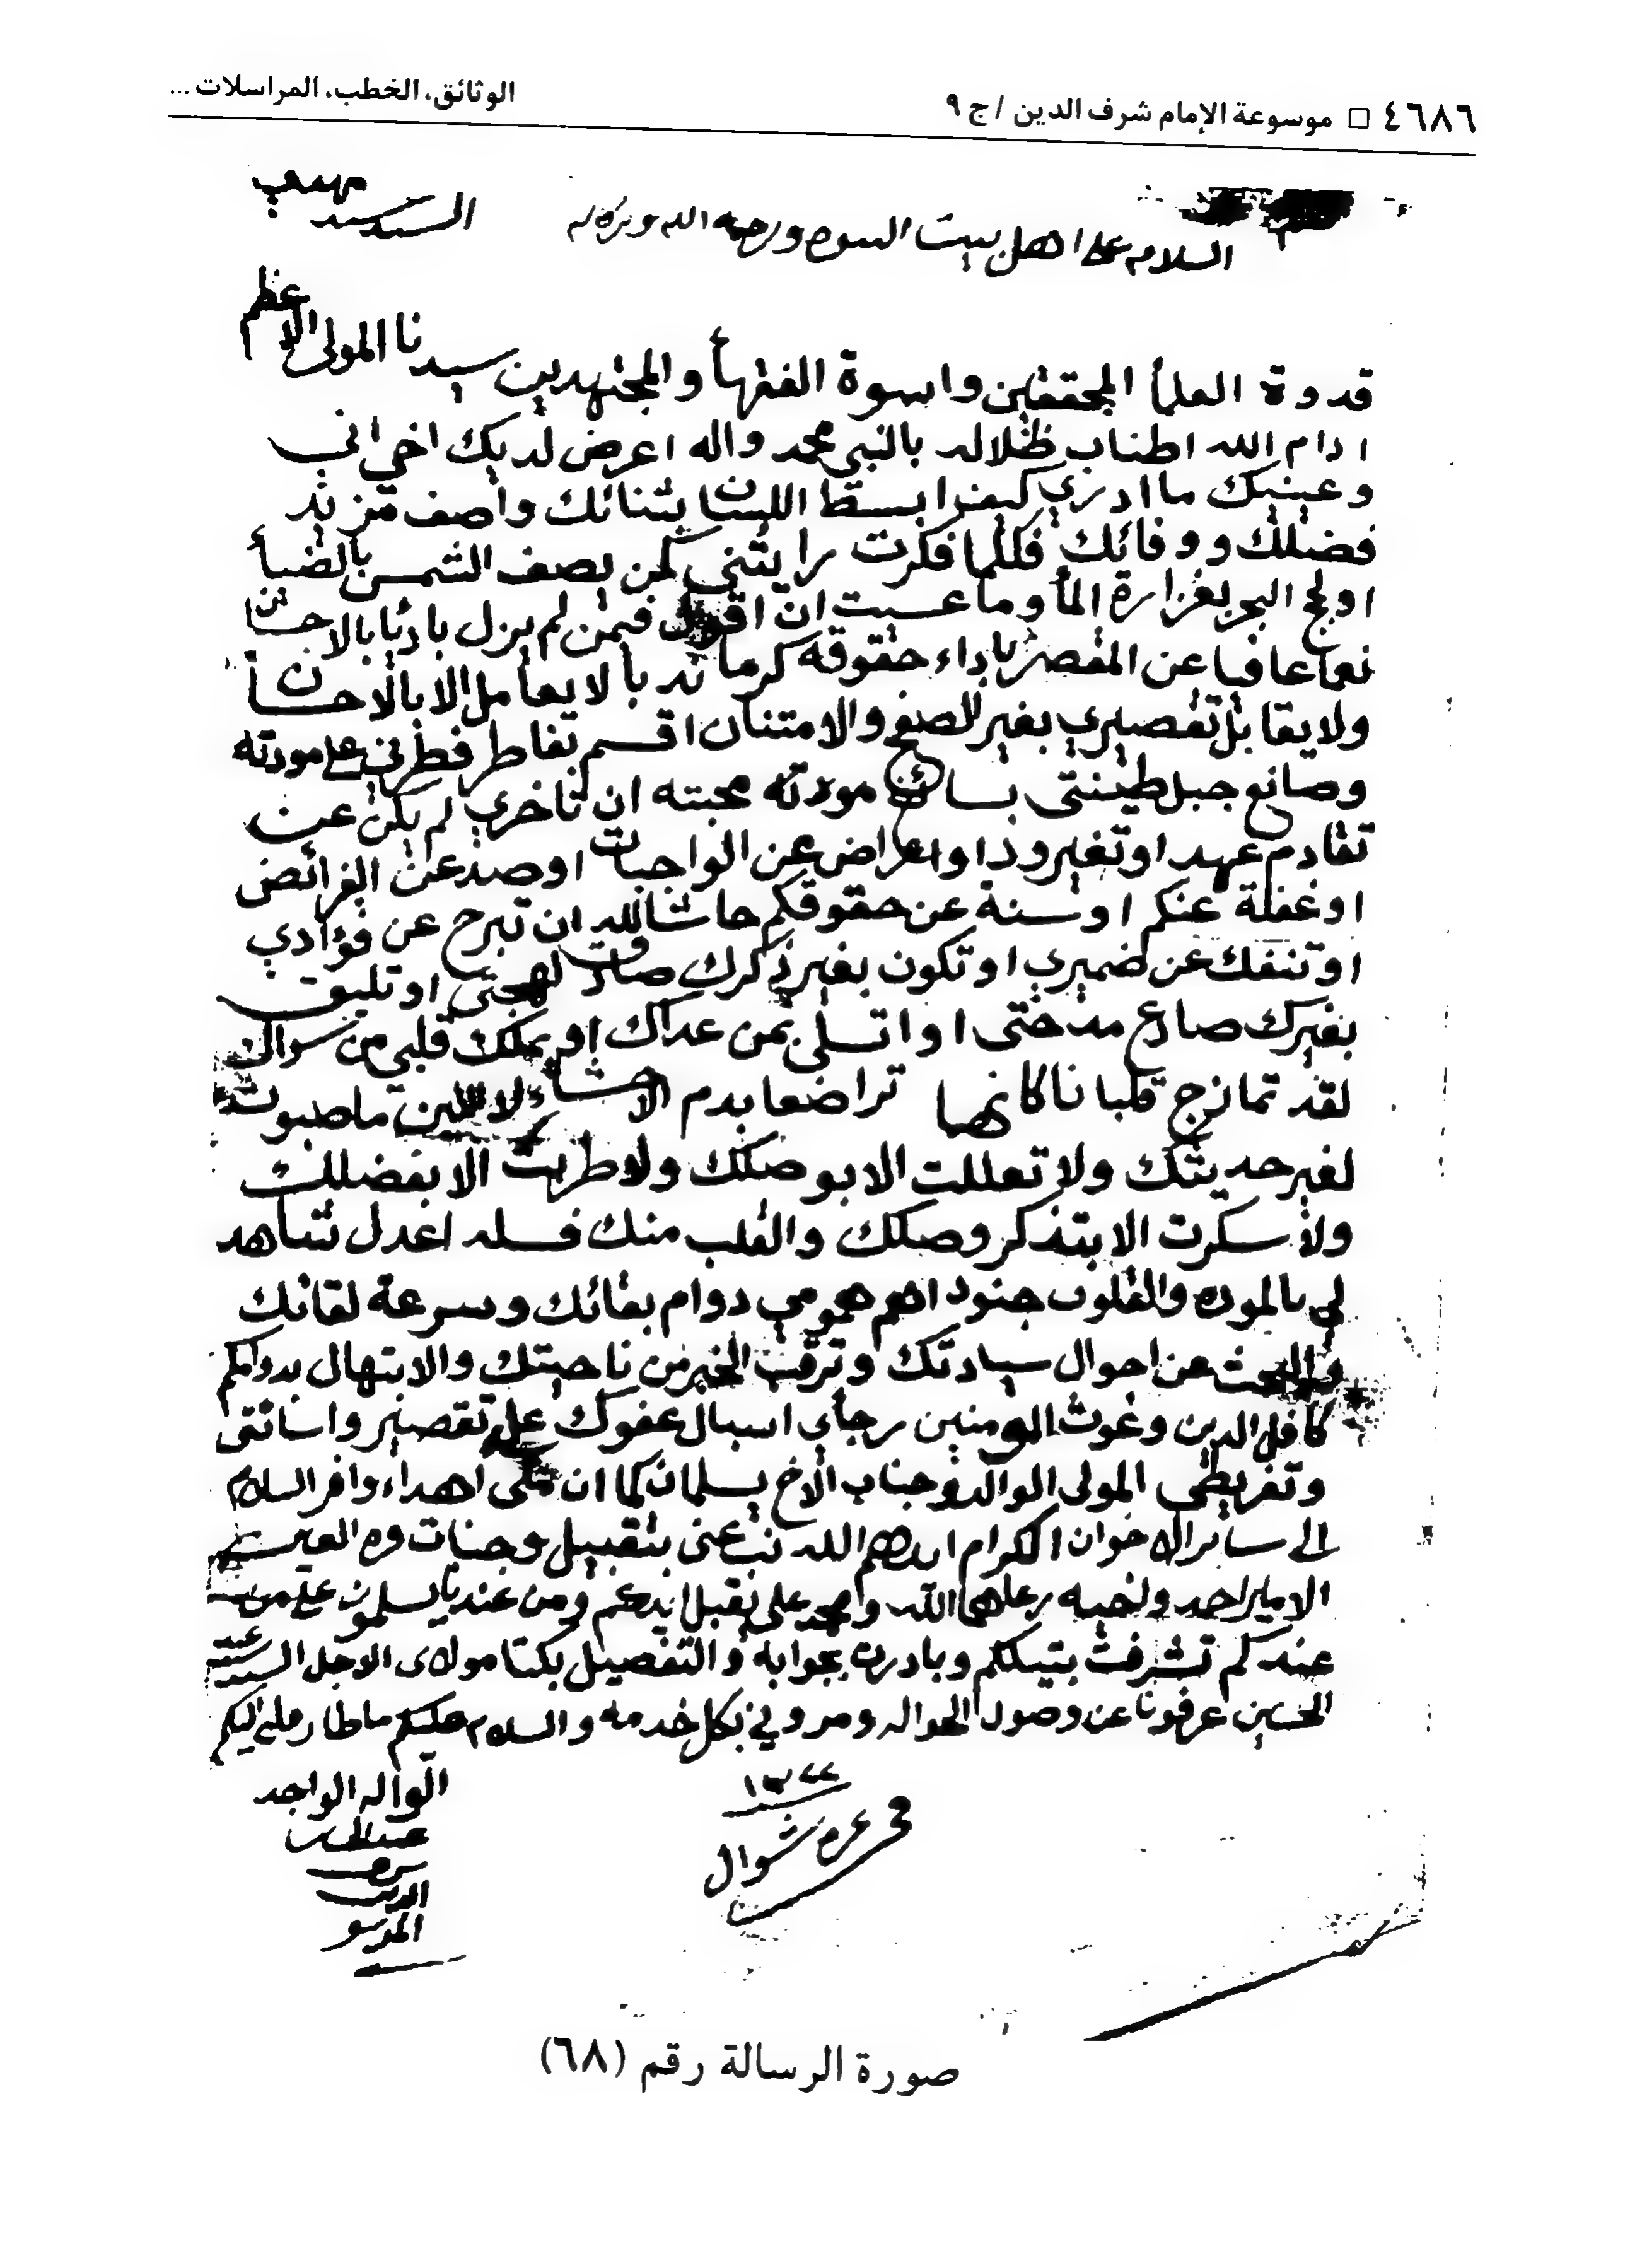 ٤٦٨٦ □ موسوعة الإمام شرف الدين / ج ٩
الوثائق، الخطب، المراسلات ...
السلام على اهل بيت ورحمة الله وبركاته
السيد مهدي
قدوة العلمأ المحققين واسوة الفقهأ والمجتهدين سيدنا المولى الاعظم
ادام الله اطناب ظلاله بالنبي محمد واله اعرض لديك اخي اني
وعينيك ما ادري كيف ابسط اللسان بثنائك واصف مزيد
فضلك ووفائك فكلما فكرت رايتني كمن يصف الشمس بالضيأ
او لج البحر بغزارة المأ وما عسيت ان اقول فيمن لم يزل بادئا بالاحسان
نعما عافيا عن المقصر باداء حقوقه كرما لا يعامل الا بالاحسان
ولا يقابل تقصيري بغير الصفح والامتنان اقسم بفاطر فطرني على مودته
وصانع جبل طينتي مودته محبته ان تاخري لم يكن عن
تقادم عهد او تغير ود او اعراض عن الواجبات او صد عن الفرائض
او غفلة عنكم او سنة عن حقوقكم حاشا لله ان تبرح عن فؤادي
او تنفك عن ضميري او تكون بغير ذكرك لهجتي او تليق
بغيرك مدحتي او اتسلى بمن عداك او يملك قلبي من سواك
لقد تمازج قلبانا كانما تراضعا بدم الاحشاء لا اللبن ما صبوت
لغير حديثك ولا تعللت الا بوصلك ولا طربت الا بفضلك
ولا سكرت الا بتذكر وصلك والقلب منك فسله اعدل شاهد
لي بالموده والقلوب جنود اهم همومي دوام بقائك وسرعة لقائك
والبحث عن احوال سيادتك وترقب الخير من ناحيتك والابتهال بدوامكم
كافل الدين وغوث المومنين رجاي اسبال عفوك على تقصيري واسائتي
وتفريطي المولى الوالد وجناب الاخ يسلمان كما ان اهداء وافر السلام
الى سائر الاخوان الكرام ايدهم الله نب عني بتقبيل وجنات قره العين
الامير احمد واخيه رعاهما الله ومحمد علي يقبل ايديكم ومن عندنا يسلمون على من
عندكم تشرفت وبادرت بجوابه والتفصيل بكتاب مولاي الاجل السيد عبد
الحسين عرفونا عن وصول الحواله ومروني بكل خدمه والسلام عليكم
الواله الواجد
عبد الحسين
شرف
الدين
الموسوي
١٣٢٢
في غره شوال
صورة الرسالة رقم (٦٨)